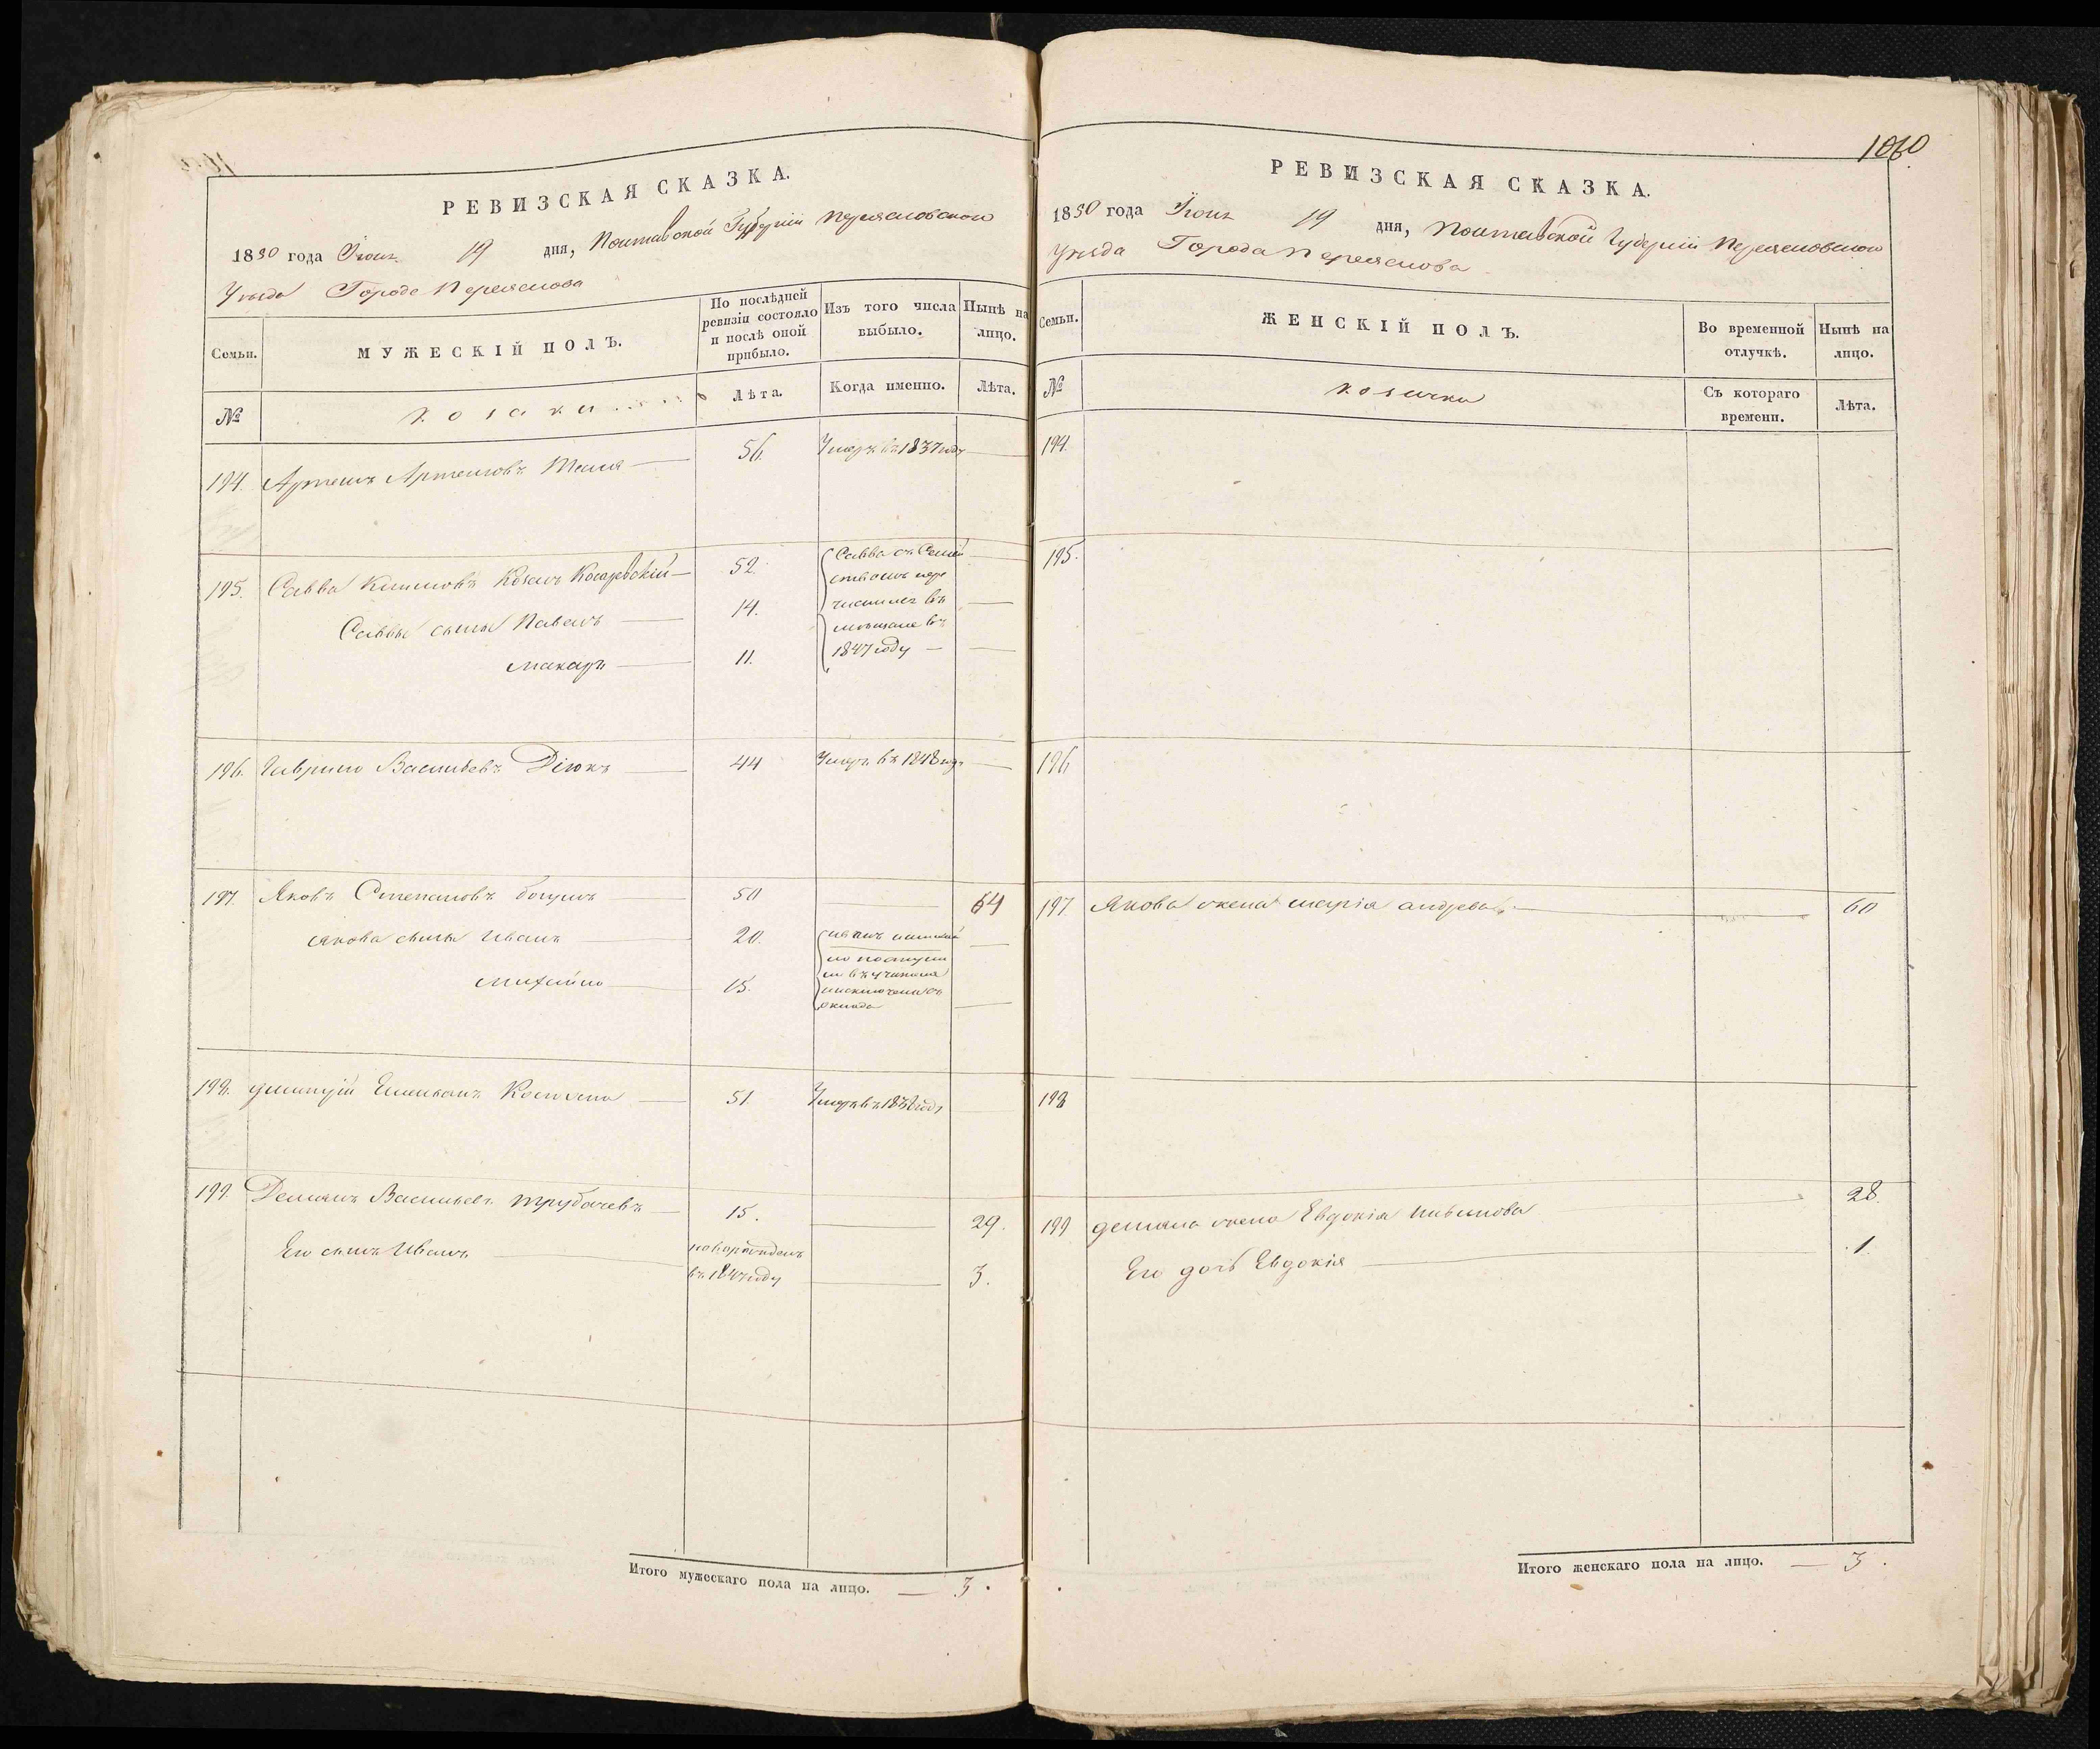 РЕВИЗСКАЯ СКАЗКА.
1850 года Іюня 19 дня, Полтавской Губерніи Переясловского
Уезда Города Переяслова
Семьи.
МУЖЕСКІЙ ПОЛЪ.
По послѣдней ревизіи состояло и послѣ оной прибыло.
Изъ того числа выбыло.
Нынѣ на лицо.
№
Козаки
Лѣта.
Когда именно.
Лѣта.
194. Артемъ Артемовъ 56. Умеръ въ 1837 году
195. Савва Климовъ Косаревскій 52.
Саввы сыны Павелъ 14.
Макаръ 11.
Савва съ Семей
ствомъ пере
численъ въ
мещане въ
1847 году
196. Гаврило Васильевъ Дігокъ 44 Умеръ въ 1848 году
197. Яковъ Степановъ 50 64
Якова сыны Иванъ 20.
Михайло 15.
оклада
198. Емельянъ 51. Умеръ въ 1838 году
199. Демьянъ Васильевъ Трубачевъ 15. 29.
Его сынъ Иванъ новорожденъ
въ 1847 году 3.
Итого мужескаго пола на лицо. — 3.
1060
РЕВИЗСКАЯ СКАЗКА.
1850 года Іюня 19 дня, Полтавской Губерніи Переясловского
Уезда Города Переяслова
Семьи.
ЖЕНСКІЙ ПОЛЪ.
Во временной отлучкѣ.
Нынѣ на лицо.
№
Козачки
Съ котораго времени.
Лѣта.
194.
195.
196
197 Якова жена Марія Андреева 60
198
199 Демьяна жена Евдокія 28.
Его дочь Евдокія 1.
Итого женскаго пола на лицо. — 3.